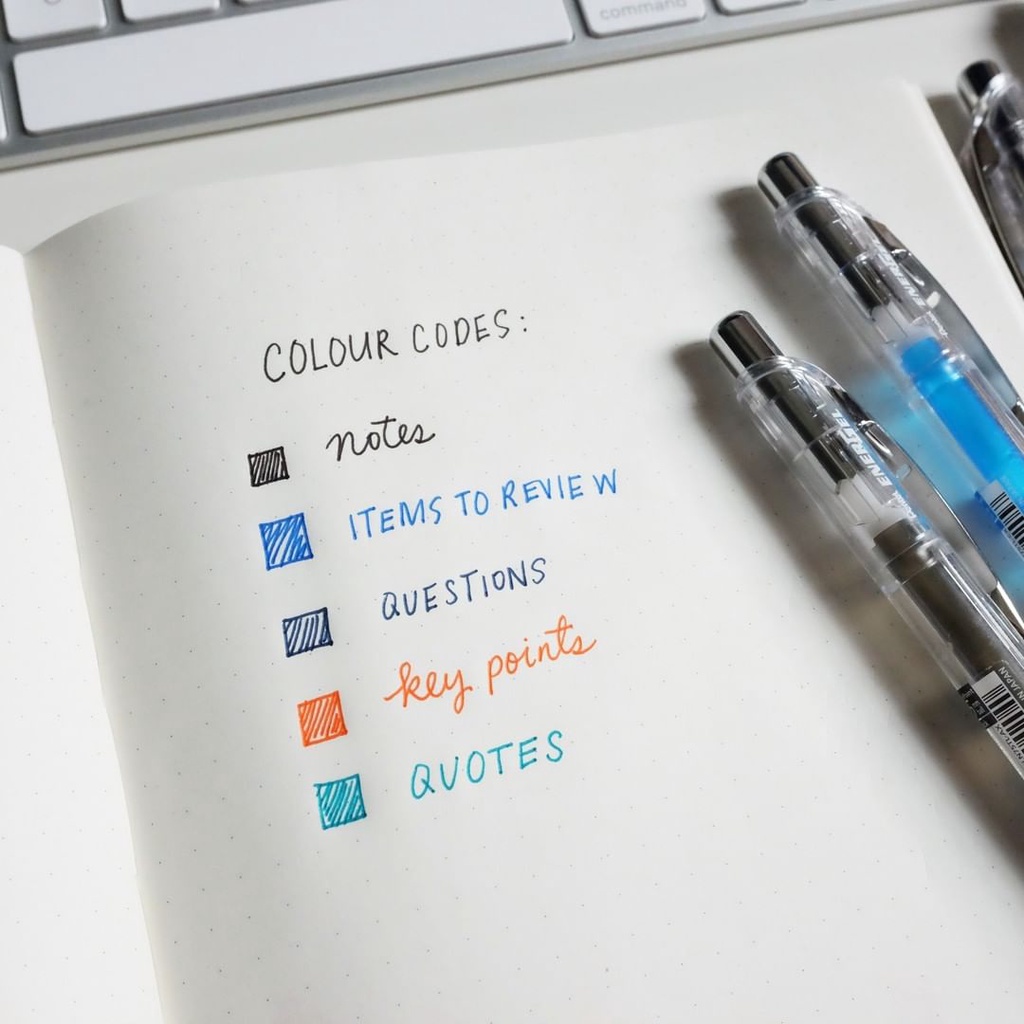 command
COLOUR CODES:
notes
ITEMS TO REVIEW
QUESTIONS
key points
QUOTES
ENERGEL
ENERGEL
IN JAPAN